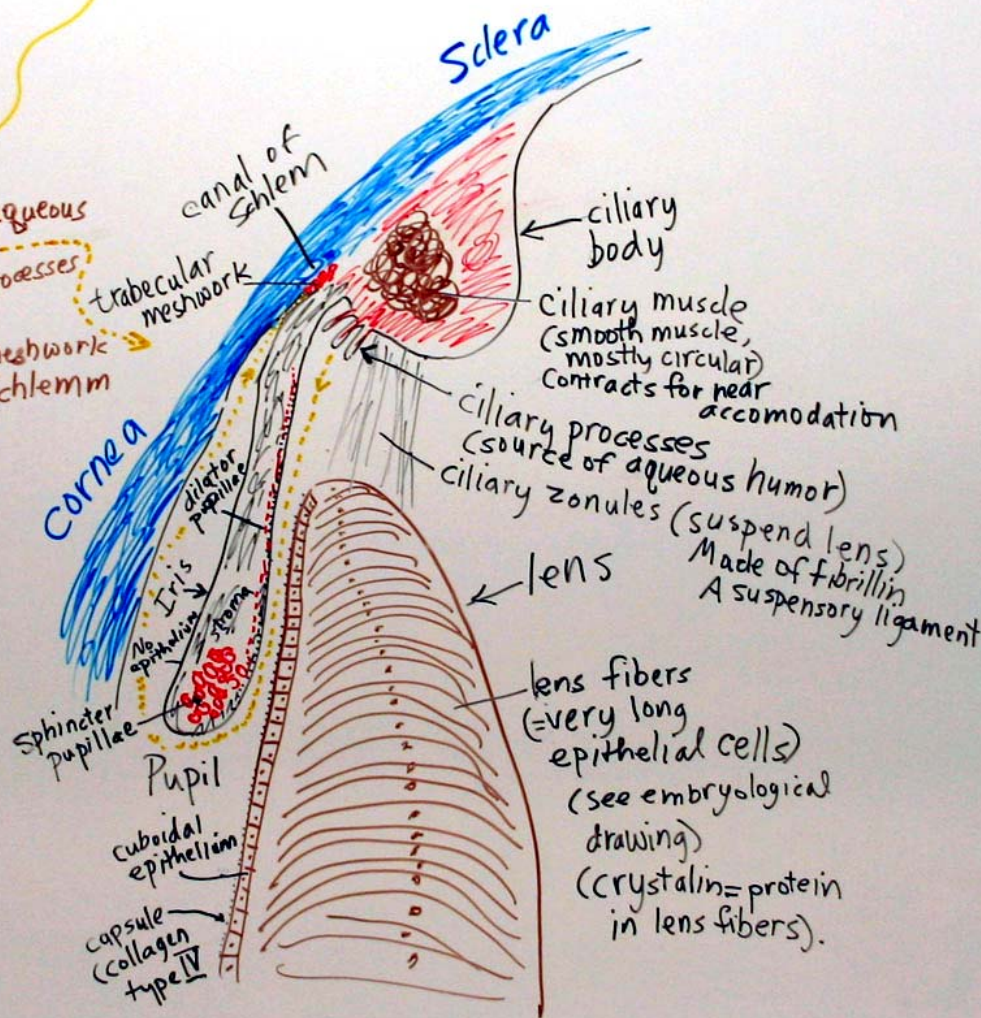 Sclera
canal of
Schlem
trabecular
meshwork
queous
ocesses
eshwork
chlemm
Cornea
ciliary
body
ciliary muscle
(smooth muscle,
mostly circular)
Contracts for near
accomodation
ciliary processes
(source of aqueous humor)
ciliary zonules (suspend lens)
Made of fibrillin
A suspensory ligament
dilator
pupillae
Iris
stroma
No
epithelium
Sphincter
pupillae
Pupil
lens
lens fibers
(=very long
epithelial cells)
(see embryological
drawing)
(crystalin=protein
in lens fibers).
cuboidal
epithelium
capsule
(collagen
type IV